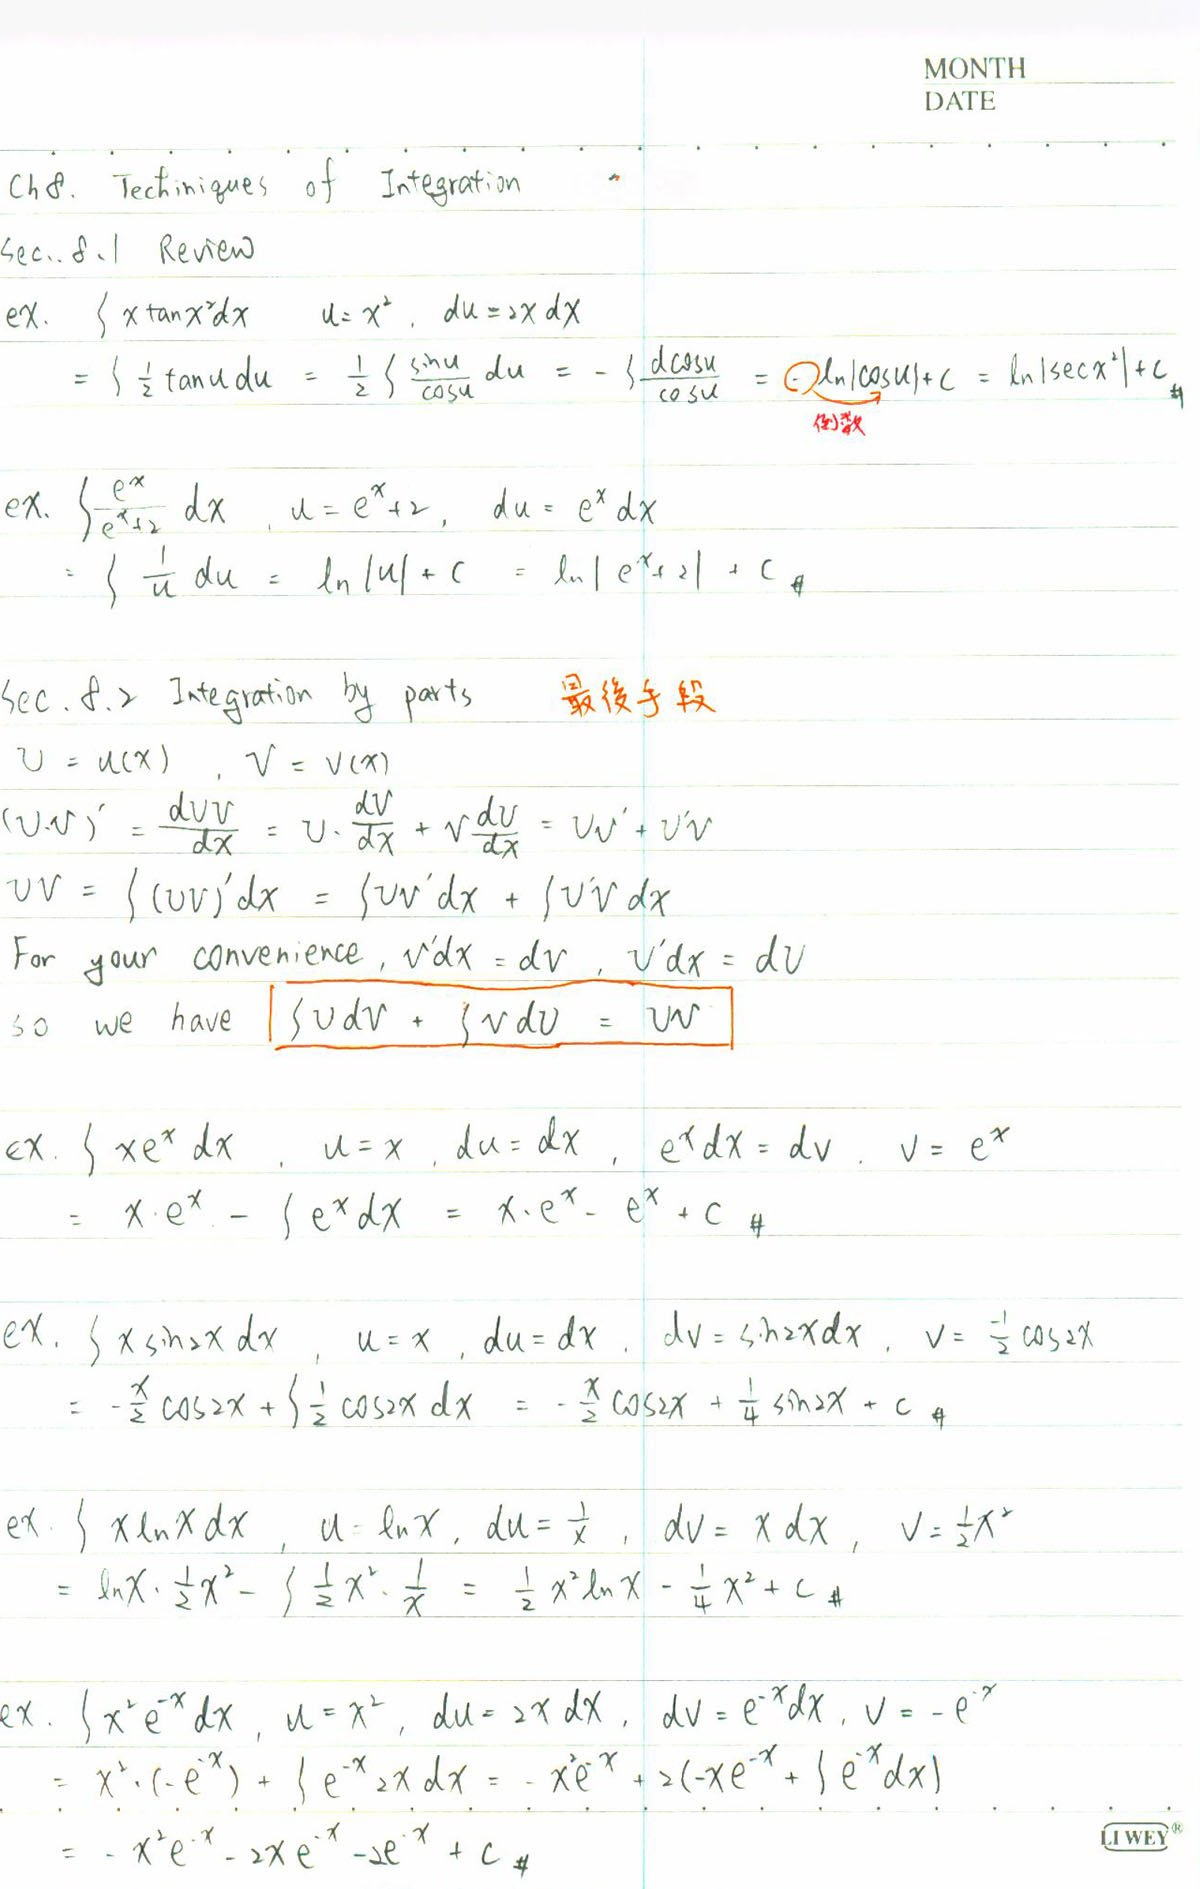 MONTH
DATE
Ch8. Techiniques of Integration
Sec.. 8.1 Review
ex. ∫ x tanx²dx u=x². du=2xdx
= ∫ 1/2 tanu du = 1/2 ∫ sinu/cosu du = -∫ dcosu/cosu = -ln|cosu|+c = ln|secx²|+c #
倒数
ex. ∫ e^x/(e^x+2) dx , u = e^x+2, du = e^x dx
= ∫ 1/u du = ln|u|+c = ln|e^x+2| + c #
Sec. 8.2 Integration by parts 最後手段
U = u(x) , V = v(x)
(U·V)' = dUV/dx = U·dV/dx + V dU/dx = UV' + U'V
UV = ∫(UV)'dx = ∫UV'dx + ∫U'V dx
For your convenience, V'dx = dV , U'dx = dU
so we have ∫UdV + ∫VdU = UV
ex. ∫ xe^x dx , u=x , du=dx , e^x dx = dv . v = e^x
= x·e^x - ∫e^x dx = x·e^x - e^x + c #
ex. ∫ x sin2x dx , u=x , du=dx . dv = sin2xdx , v = -1/2 cos2x
= -x/2 cos2x + ∫1/2 cos2x dx = -x/2 cos2x + 1/4 sin2x + c #
ex. ∫ x lnx dx , u=lnx, du=1/x , dv= x dx , v=1/2x²
= lnx·1/2x² - ∫1/2x²·1/x = 1/2 x²lnx - 1/4 x² + c #
ex. ∫x²e^-x dx, u=x², du=2x dx, dv=e^-x dx, v=-e^-x
= x²·(-e^-x) + ∫e^-x 2x dx = -x²e^-x + 2(-xe^-x + ∫e^-x dx)
LIWEY®
= -x²e^-x - 2xe^-x - 2e^-x + c #